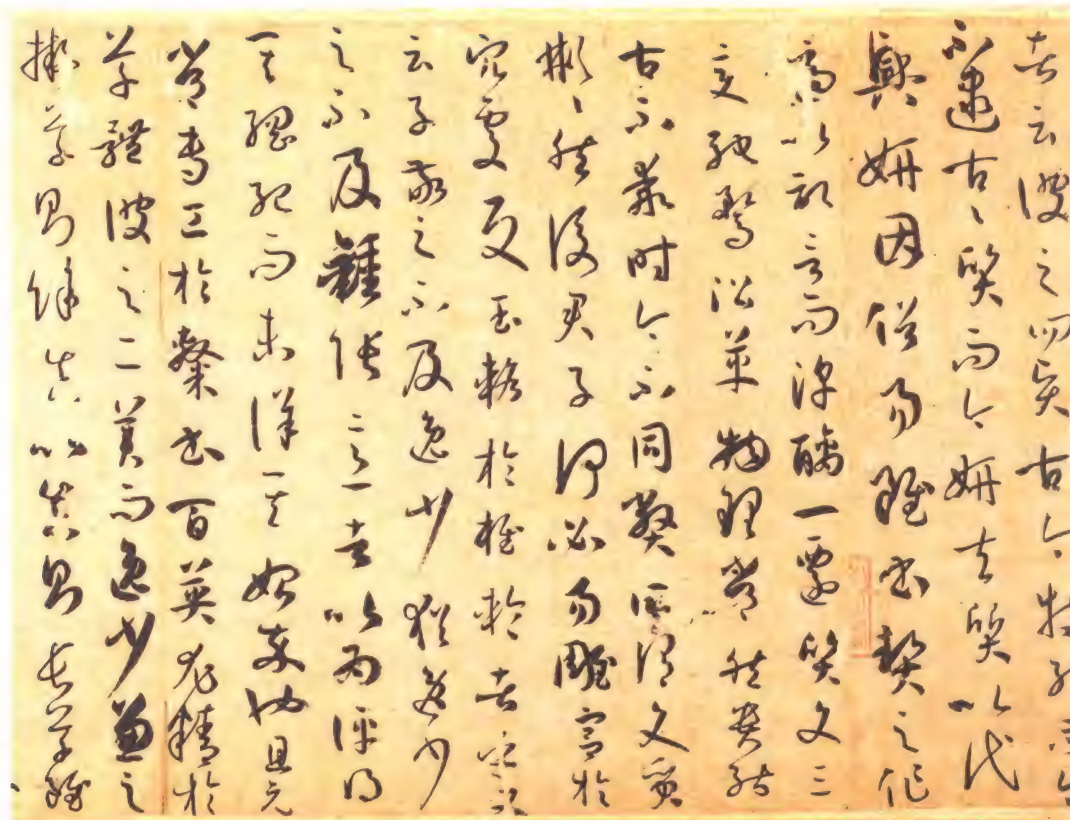 者云彼之四賢古今特絕而今
不逮古々質而今妍夫質以代
興妍因俗易雖書契之作
適以記言而淳醨一遷質文三
變馳騖沿革物理常然貴能
古不乖時今不同弊所謂文質
彬々然後君子何必易雕宮於
穴處反玉輅於椎輪者乎又
云子敬之不及逸少猶逸少
之不及鍾張意者以為評得
其綱紀而未詳其始卒也且元
常專工於隸書百英尤精於
草體彼之二美而逸少兼之
擬草則餘真比真則長草雖